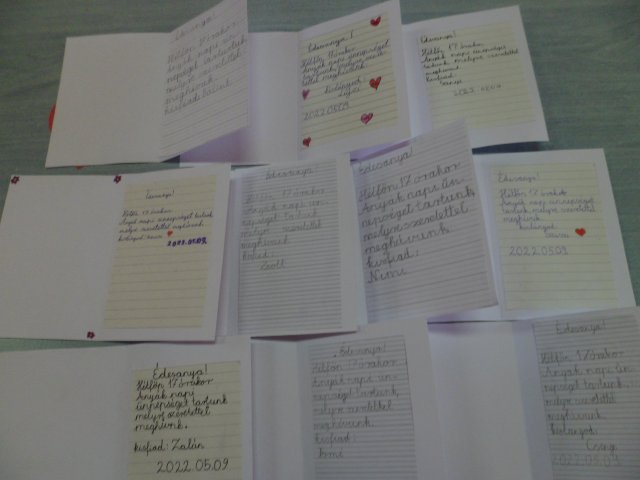 Édesanya!
Hétfőn 17 órakor
Anyák napi ün-
nepséget tartunk
melyre szeretettel
meghívunk.
kisfiad:
Édesanya!
Hétfőn 17 órakor
Anyák napi ünnepséget
tartunk melyre szere-
tettel meghívunk.
kislányod:
2022.05.09
Édesanya!
Hétfőn 17 órakor
Anyák napi ünnepséget
tartunk melyre szeretettel
meghívunk.
kisfiad:
2022.05.09
Hétfőn 17 órakor
Anyák napi ünnepséget tartunk
melyre szeretettel meghívunk.
2022.05.09.
Édesanya!
Hétfőn 17 órakor
Anyák napi ün-
nepséget tartunk
melyre szeretettel
meghívunk
kisfiad:
Zsolt
Édesanya!
Hétfőn 17 órakor
Anyák napi ün-
nepséget tartunk
melyre szeretettel
meghívunk
kisfiad:
Nimi
Édesanya!
Hétfőn 17 órakor
Anyák napi ünnepséget
tartunk melyre szeretettel
meghívunk
kislányod:
2022.05.09
Édesanya!
Hétfőn 17 órakor
Anyák napi
ünnepséget tartunk
melyre szeretettel
meghívunk.
kisfiad: Zalán
2022.05.09
Édesanya!
Hétfőn 17 órakor
Anyák napi ün-
nepséget tartunk,
melyre szeretettel
meghívunk.
kisfiad:
Édesanya!
Hétfőn 17 órakor
Anyák napi ün-
nepséget tartunk.
melyre szeretettel
meghívunk.
kislányod:
Csenge
2022.05.09